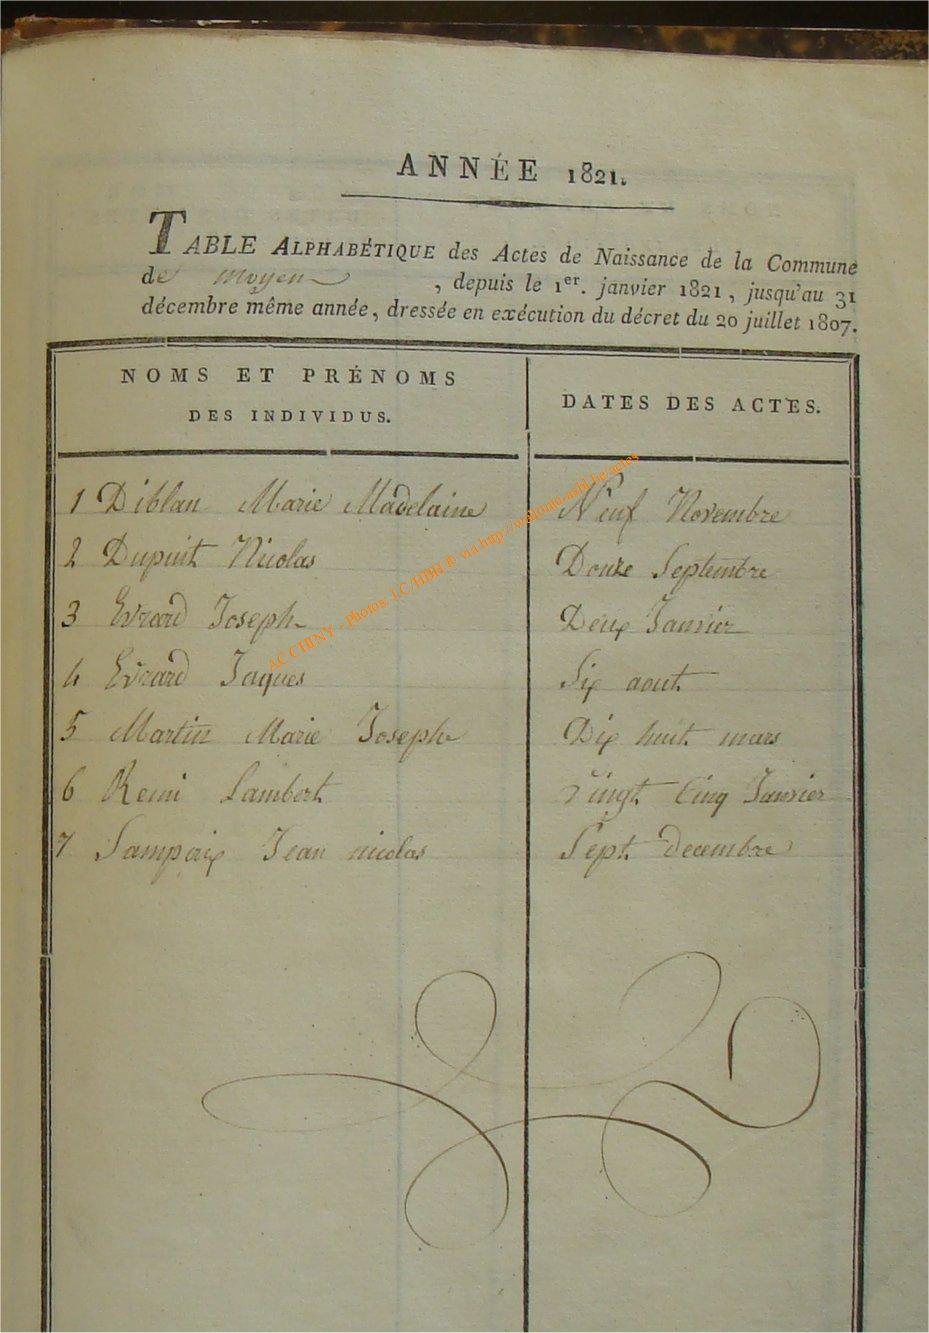 ANNÉE 1821.
TABLE ALPHABÉTIQUE des Actes de Naissance de la Commune
de moyen, depuis le 1er. janvier 1821, jusqu'au 31
décembre même année, dressée en exécution du décret du 20 juillet 1807.
NOMS ET PRÉNOMS
DES INDIVIDUS.
DATES DES ACTES.
1 Diblan Marie Madelaine Neuf Novembre
2 Dupuit Nicolas Douze Septembre
3 Evrard Joseph Deux Janvier
4 Evrard Jaques Six aout
5 Martin Marie Joseph Dix huit mars
6 Remi Lambert vingt Cinq Janvier
7 Sampoix Jean nicolas Sept decembre
AC CHINY - Photos. J.C/HBH.® via http://